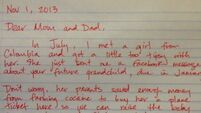 Nov 1, 2013
Dear Mom and Dad,
In July, I met a girl from
Colombia and got a little too tipsy with
her. She just sent me a Facebook message
about your future grandchild, due in January.
Don't worry, her parents saved enough money
from farming cocaine to buy her a plane
ticket here so we can raise the baby